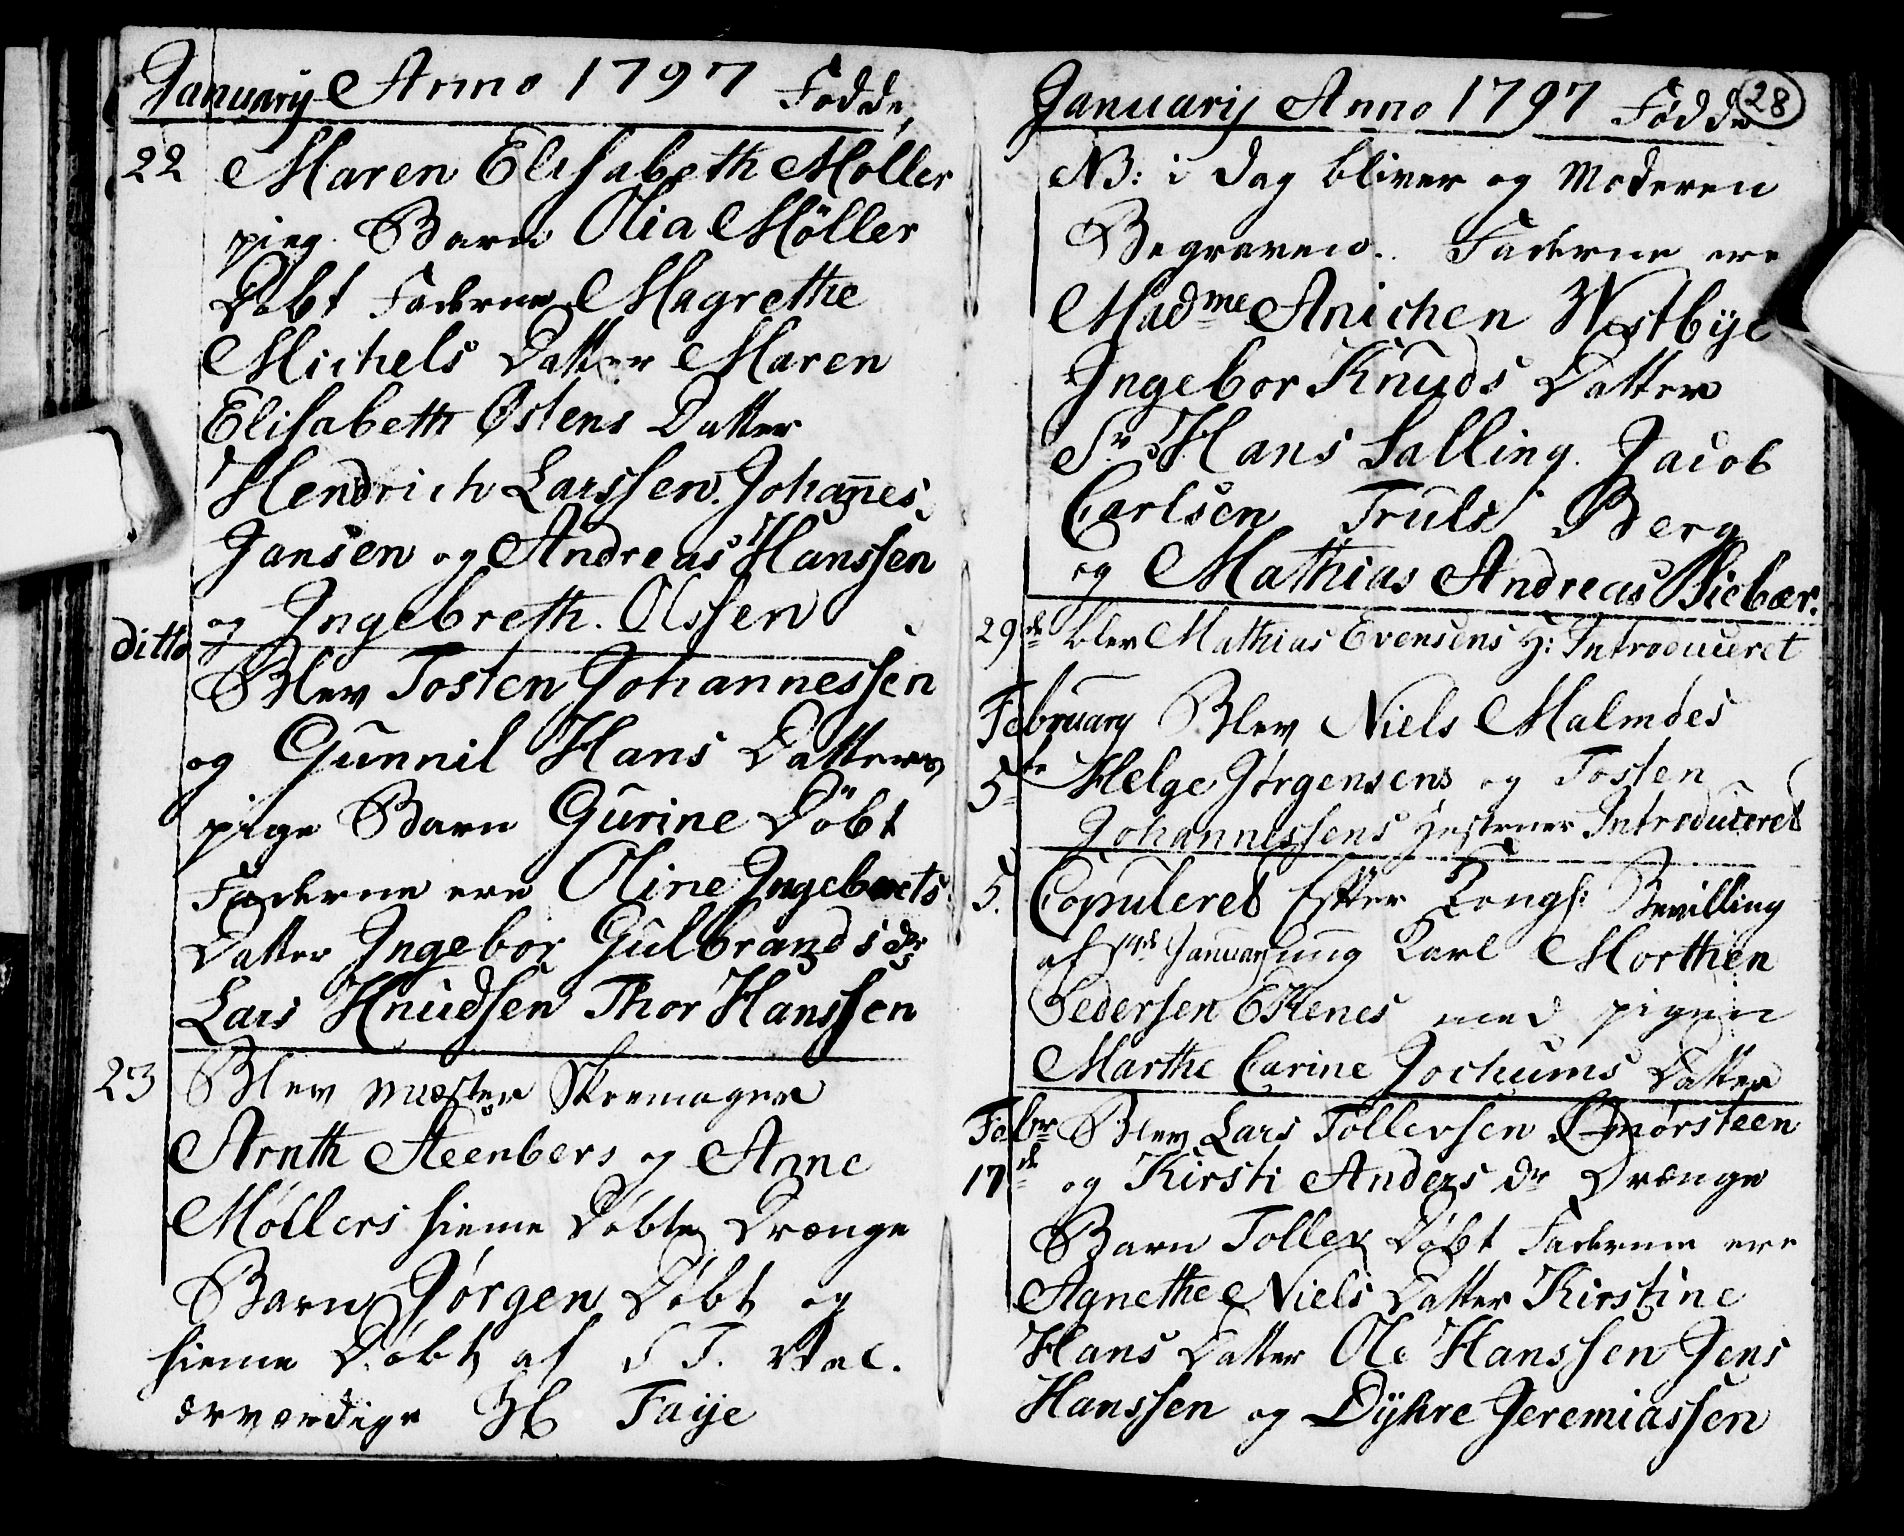 January Anno 1797 Fødde,
22 Maren Elisabeth Møller
pieg Barn Olia Møller
Døbt Faderne Magrethe
Michels Datter Maren
Elisabeth Østens Datter
Hendrich Larssen. Johan̅es
Jansen og Andreas Hanssen
og Ingebreth. Olssen
ditto
Blev Tosten Johannessen
og Gunnil Hans Datters
pige Barn Gurine Døbt
Faderne ere Oline Ingebrets
Datter Ingebor Gulbrands dr
Lars Knudsen Thor Hanssen
23 Blev Mæster Skremager
Arnth Steenbers og Anne
Møllers hieme Døbte Drænge
Barn Jørgen Døbt og
hieme Døbt af S T. Vel.
ærværdige Hl Faije
Januarij Anno 1797 Fødde 28
NB: i Dag bliver og Moderen
Begraven. Faderne ere
Madme Anichen Westbye
Ingebor Knuds Datter
Sr Hans Salling. Jacob
Carlsen Truls Berg
og Mathias Andreas Biebær.
29de blev Mathias Evensens H: Introduceret
February Blev Niels Malmdes
5te Helge Jørgensens og Tosten
Johannessens Hustruer Introduceret
5. Copuleret Efter Kongl: Bevilling
af Januar ung Karl Morthen
Pedersen Ekenes med pigen
Marthe Carine Jochums Datter
Febr Blev Lars Tollevsen Smørsteen
17de og Kirsti Anders dr Drænge
Barn Tollev Døbt Faderne ere
Agnethe Niels Datter Kirstine
Hans Datter Ole Hanssen Jens
Hanssen og Dyhre Jeremiassen